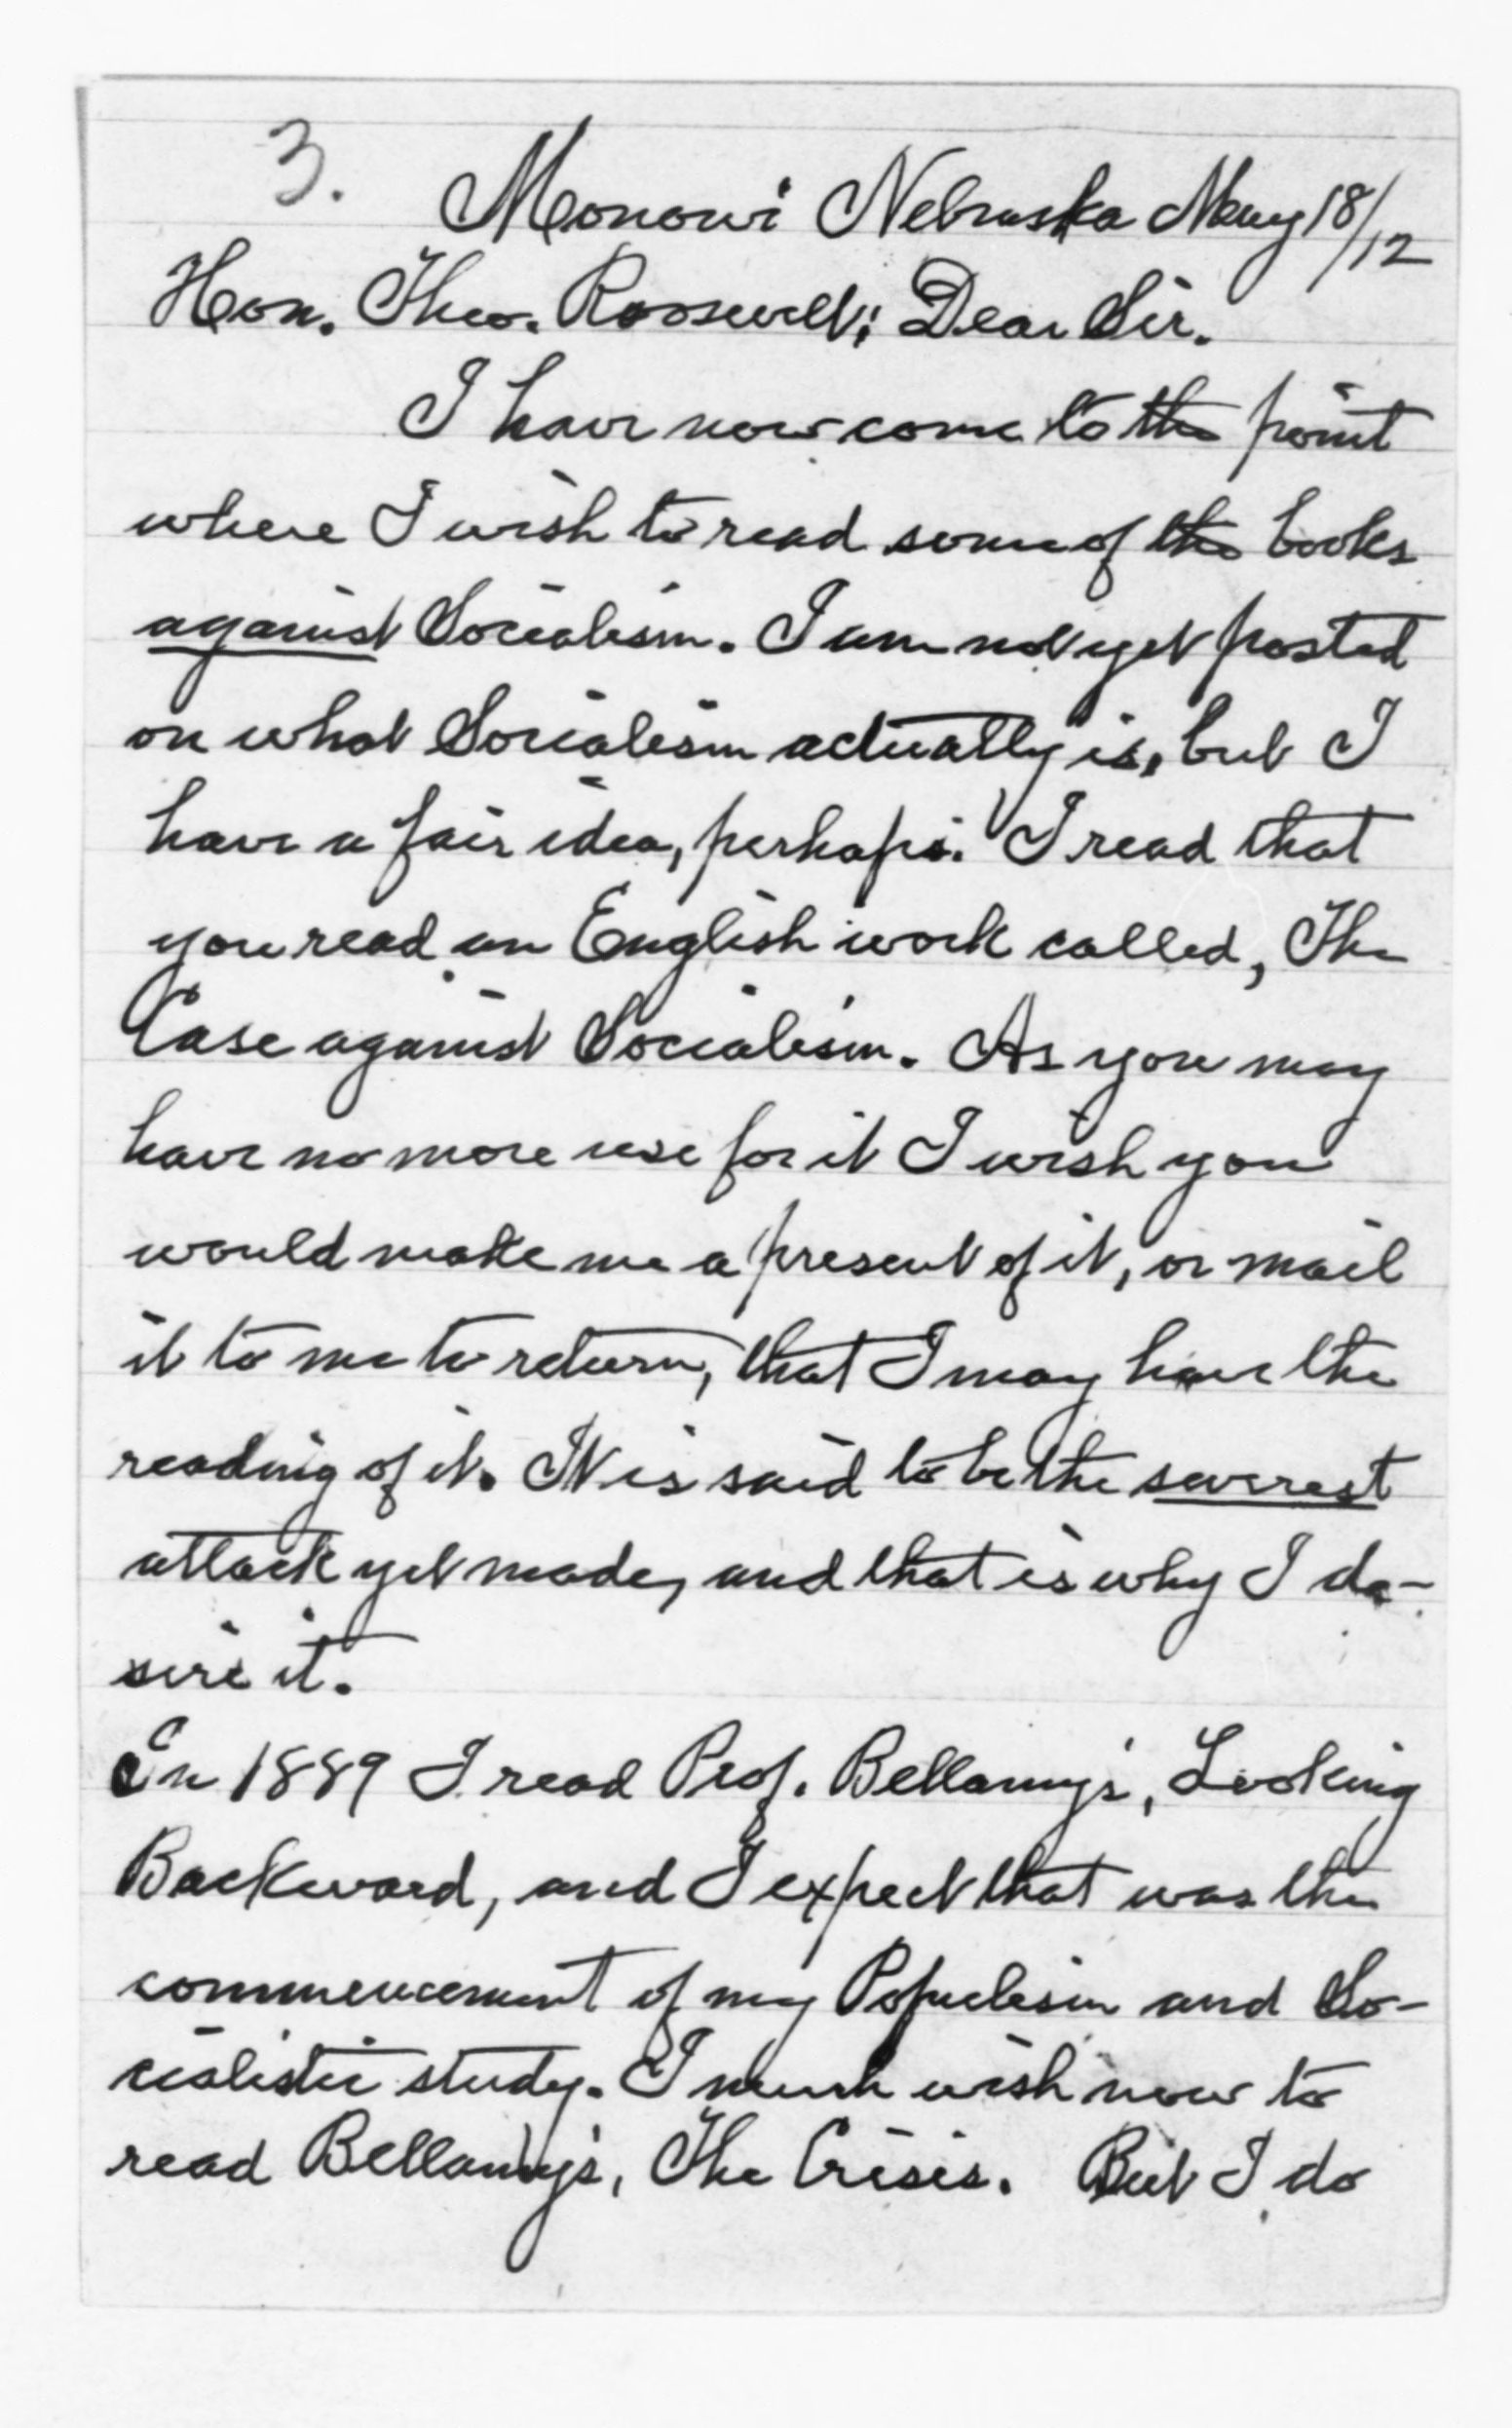 3.
Monowi Nebraska May 18/12
Hon. Theo. Roosevelt; Dear Sir.
I have now come to the point
where I wish to read some of the books
against Socialism. I am not yet posted
on what Socialism actually is, but I
have a fair idea, perhaps. I read that
you read an English work called, The
Case against Socialism. As you may
have no more use for it I wish you
would make me a present of it, or mail
it to me to return, that I may have the
reading of it. It is said to be the severest
attack yet made, and that is why I de-
sire it.
In 1889 I read Prof. Bellamy's, Looking
Backward, and I expect that was the
commencement of my Populism and So-
cialistic study. I much wish now to
read Bellamy's, The Crisis. But I do